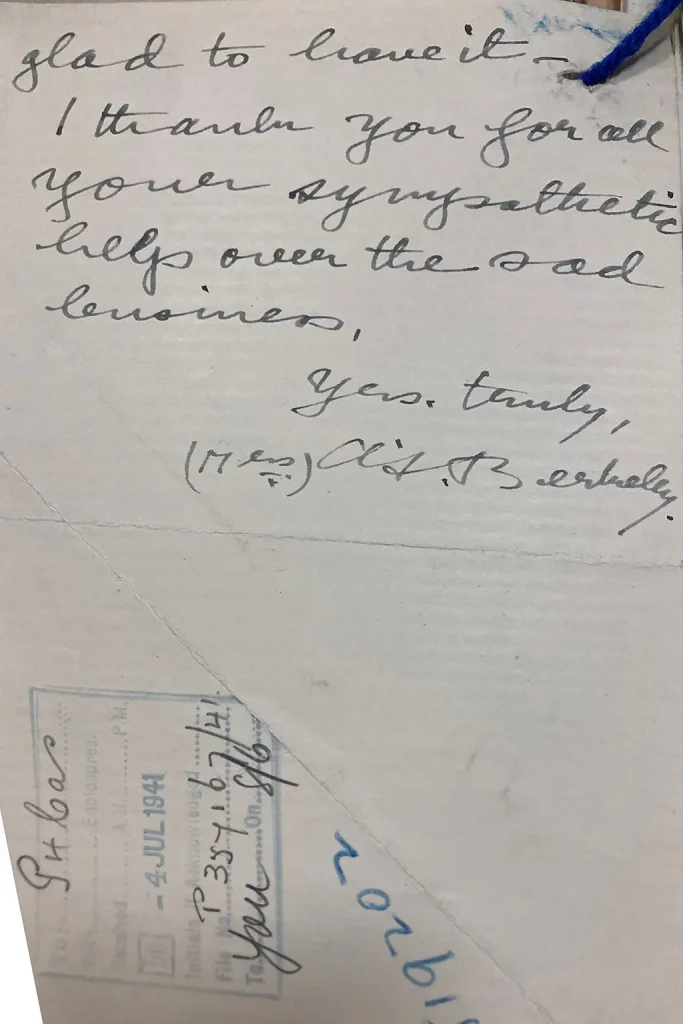 glad to have it –
I thank you for all
your sympathetic
help over the sad
business,
Yrs. truly,
(Mrs) A. F. Berkeley.
P4 Cas
Enclosures.
Received A.M. P.M.
- 4 JUL 1941
Initials Acknowledged
File No. P 357167/41
To You On 8/6